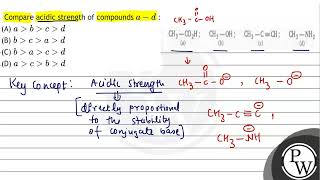 Compare acidic strength of compounds a – d :
(A) a > b > c > d
(B) b > c > a > d
(C) b > a > c > d
(D) a > c > b > d
CH₃–C–OH
O
CH₃–CO₂H; CH₃–OH; CH₃–C≡CH; CH₃–NH₂
(a) (b) (c) (d)
Key Concept: Acidic strength
[directly proportional
to the stability
of conjugate base]
O
CH₃–C–O⊖, CH₃–O⊖
CH₃–C≡C⊖
CH₃–NH⊖
PW